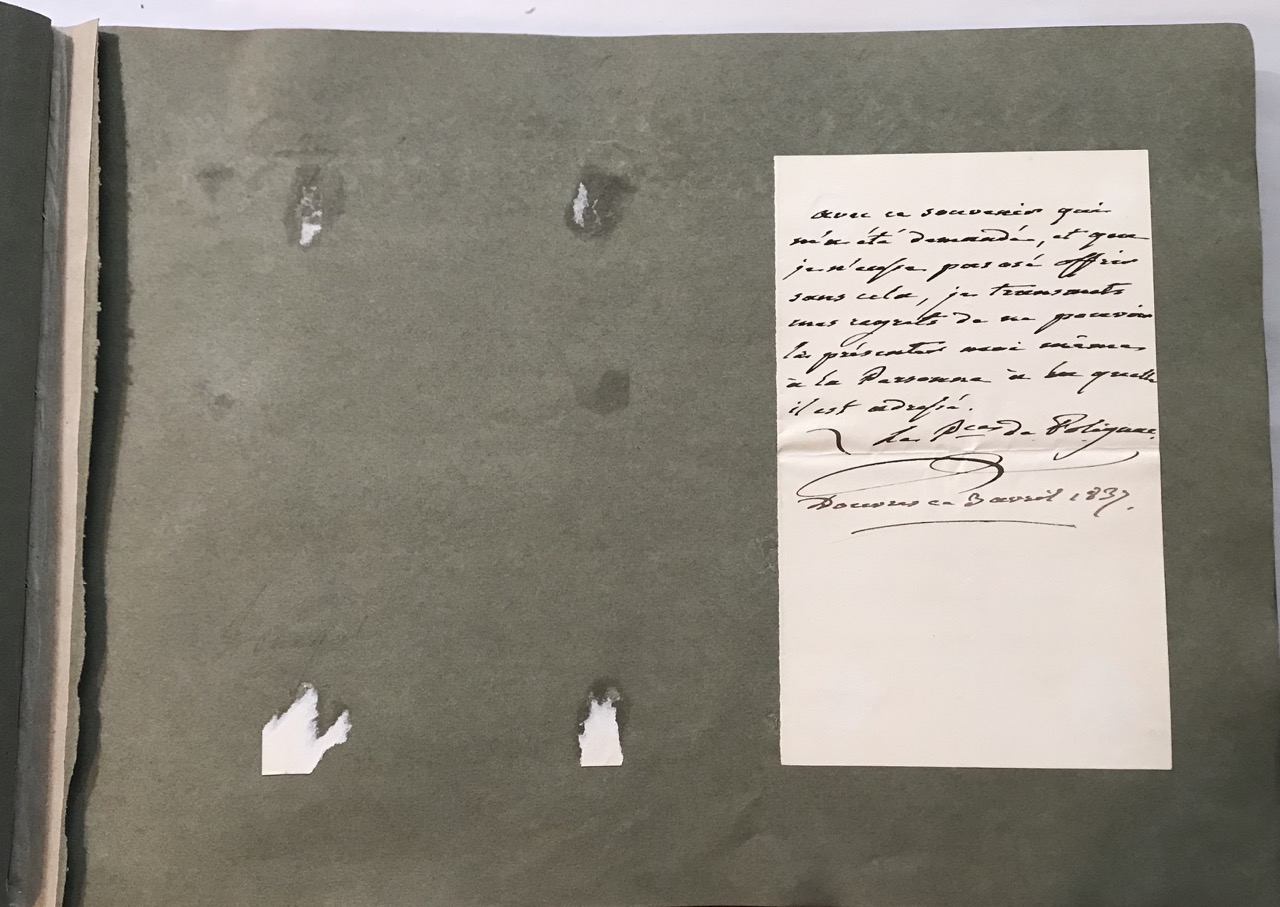 avec ce souvenir qui
m'a été demandé, et que
je n'eusse pas osé offrir
sans cela, je transmets
mes regrets de ne pouvoir
le présenter moi même
à la Personne à la quelle
il est adressé.
le Pce de Polignac
Douvres ce 3 avril 1837.